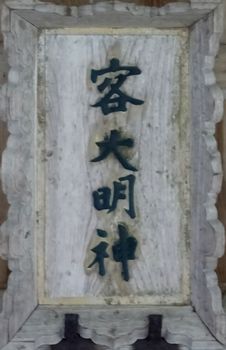 客大明神